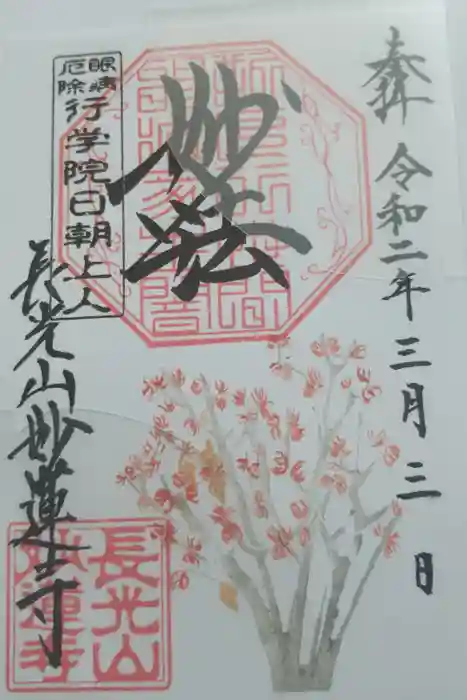 奉拝 令和二年三月三日
妙法
眼病
厄除
行学院日朝上人
長光山妙蓮寺
長光山
妙蓮寺